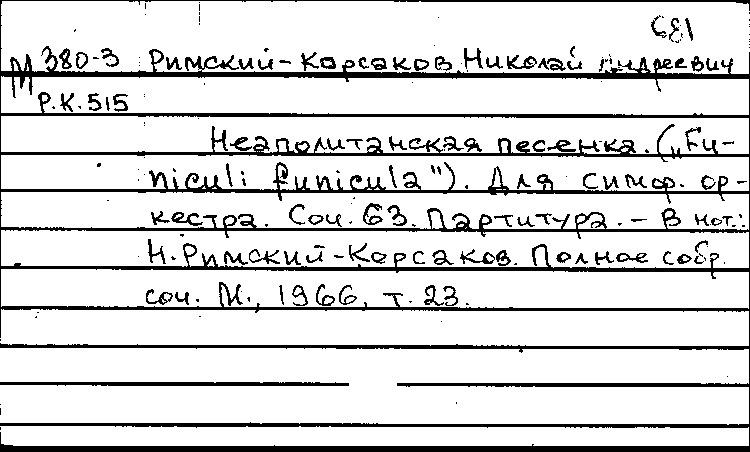 681
М 380-3 Римский-Корсаков Николай Андреевич
Р.К.515
Неаполитанская песенка. („Fu-
niculi funicula"). Для симф. ор-
кестра. Соч. 63. Партитура. - В нот.:
Н. Римский-Корсаков. Полное собр.
соч. М., 1966, т. 23.